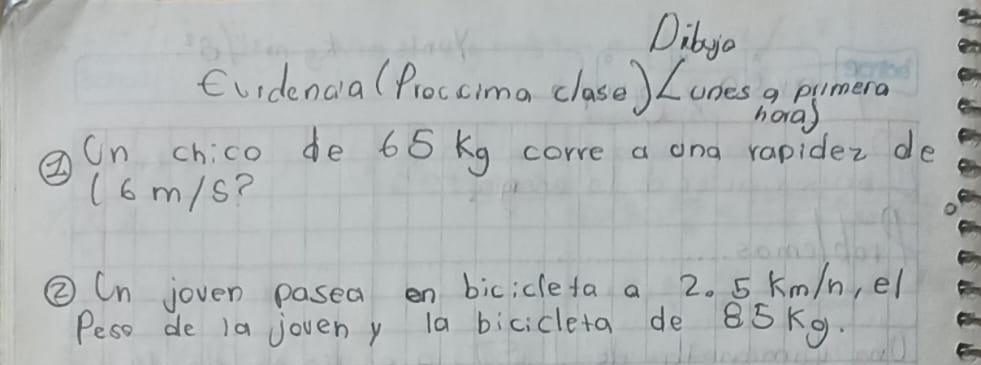 Dibujo
Evidencia (Proccima clase) Lunes a primera
hora)
① Un chico de 65 Kg corre a una rapidez de
16 m/s?
② Un joven pasea en bicicleta a 2.5 Km/h, el
Peso de la joven y la bicicleta de 85 Kg.